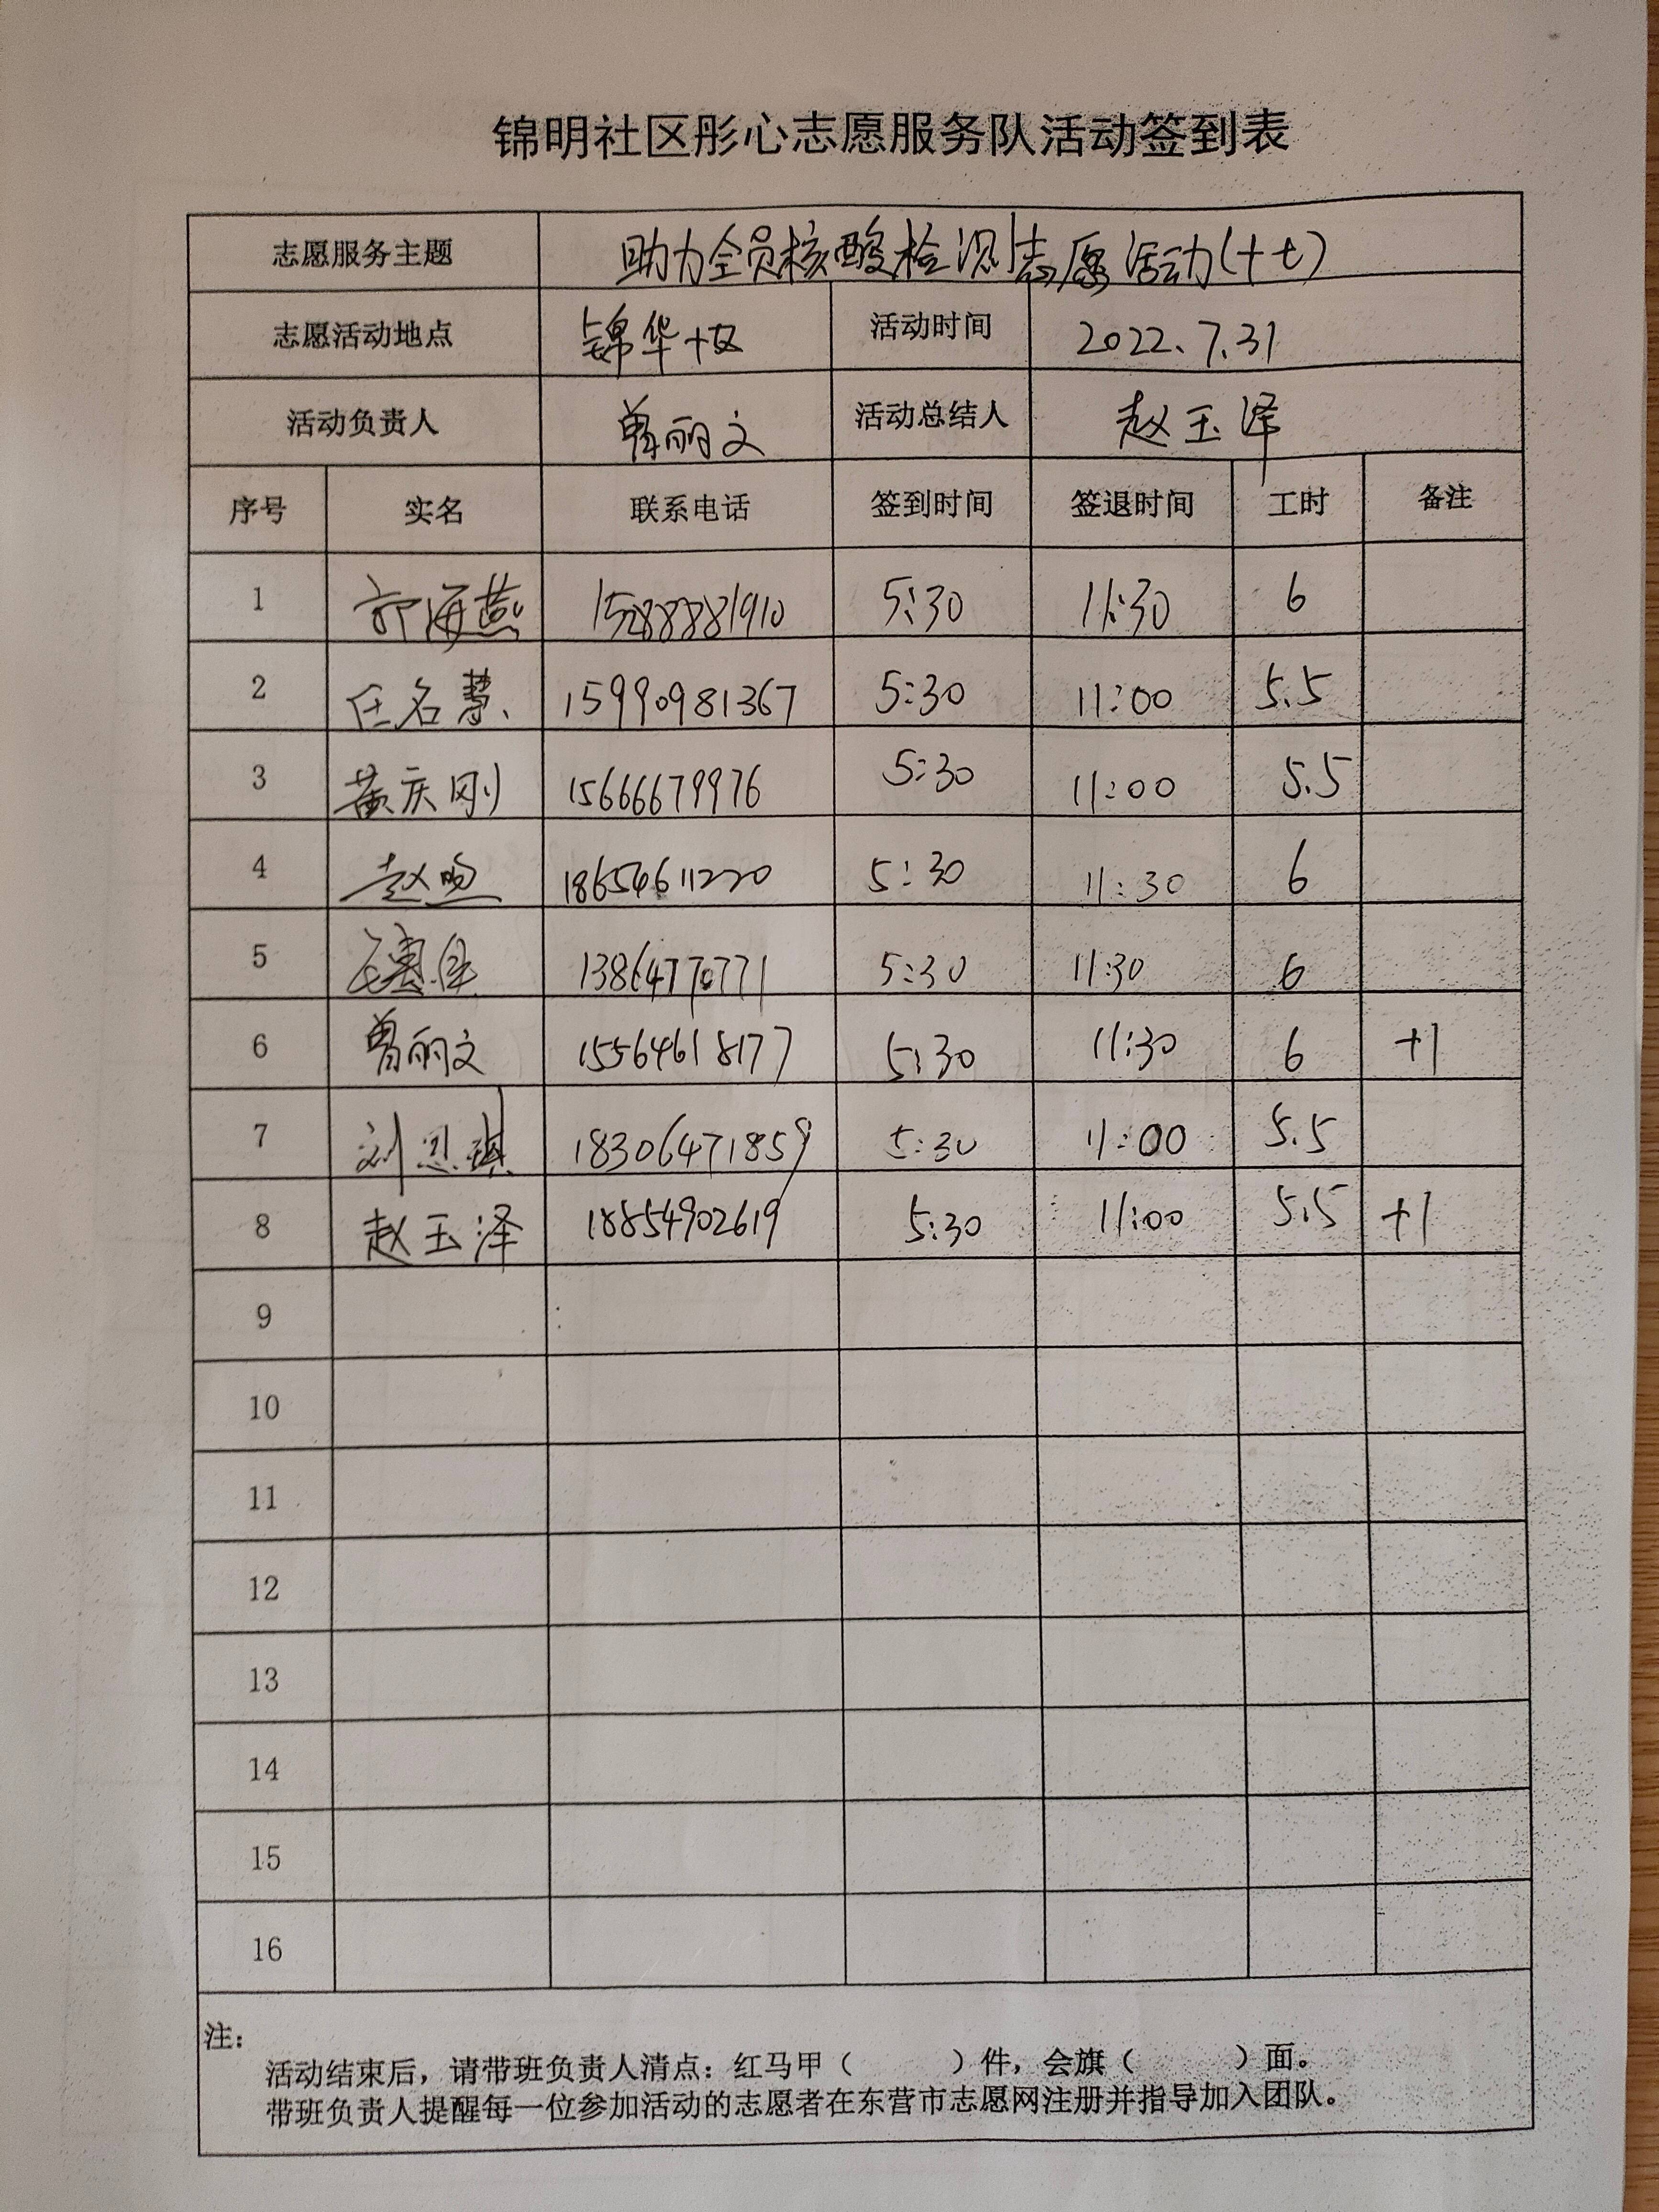 锦明社区彤心志愿服务队活动签到表
志愿服务主题 助力全员核酸检测志愿活动(十七)
志愿活动地点 锦华十区 活动时间 2022.7.31
活动负责人 曾丽文 活动总结人 赵玉泽
序号 实名 联系电话 签到时间 签退时间 工时 备注
1 郭海燕 15288881910 5:30 11:30 6
2 任名慧 15990981367 5:30 11:00 5.5
3 黄庆刚 15666679976 5:30 11:00 5.5
4 18654611220 5:30 11:30 6
5 5:30 11:30 6
6 曾丽文 15564618177 5:30 11:30 6 +1
7 刘思琪 18306471859 5:30 11:00 5.5
8 赵玉泽 18854902619 5:30 11:00 5.5 +1
9
10
11
12
13
14
15
16
注：
活动结束后，请带班负责人清点：红马甲（ ）件，会旗（ ）面。
带班负责人提醒每一位参加活动的志愿者在东营市志愿网注册并指导加入团队。